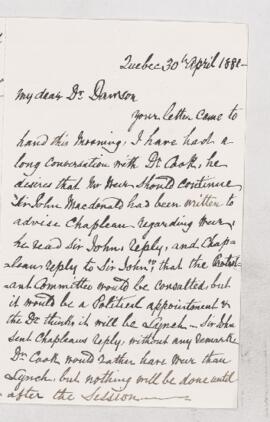 Quebec 30th April 1881-
My dear Dr. Dawson
your letter came to
hand this Morning, I have had a
long Conversation with Dr. Cook, he
desires that Mr Weir Should continue
Sir John Macdonald had been written to
advise Chapleau regarding Weir,
he read Sir John's reply, and Chap-
leau's reply to Sir John, that the Protest-
ant Committee would be Consulted but
it would be a Political appointment &
the Dr. thinks it will be Lynch - Sir John
sent Chapleau's reply, without any remarks
Dr. Cook would rather have Weir than
Lynch, but nothing will be done until
after the Session